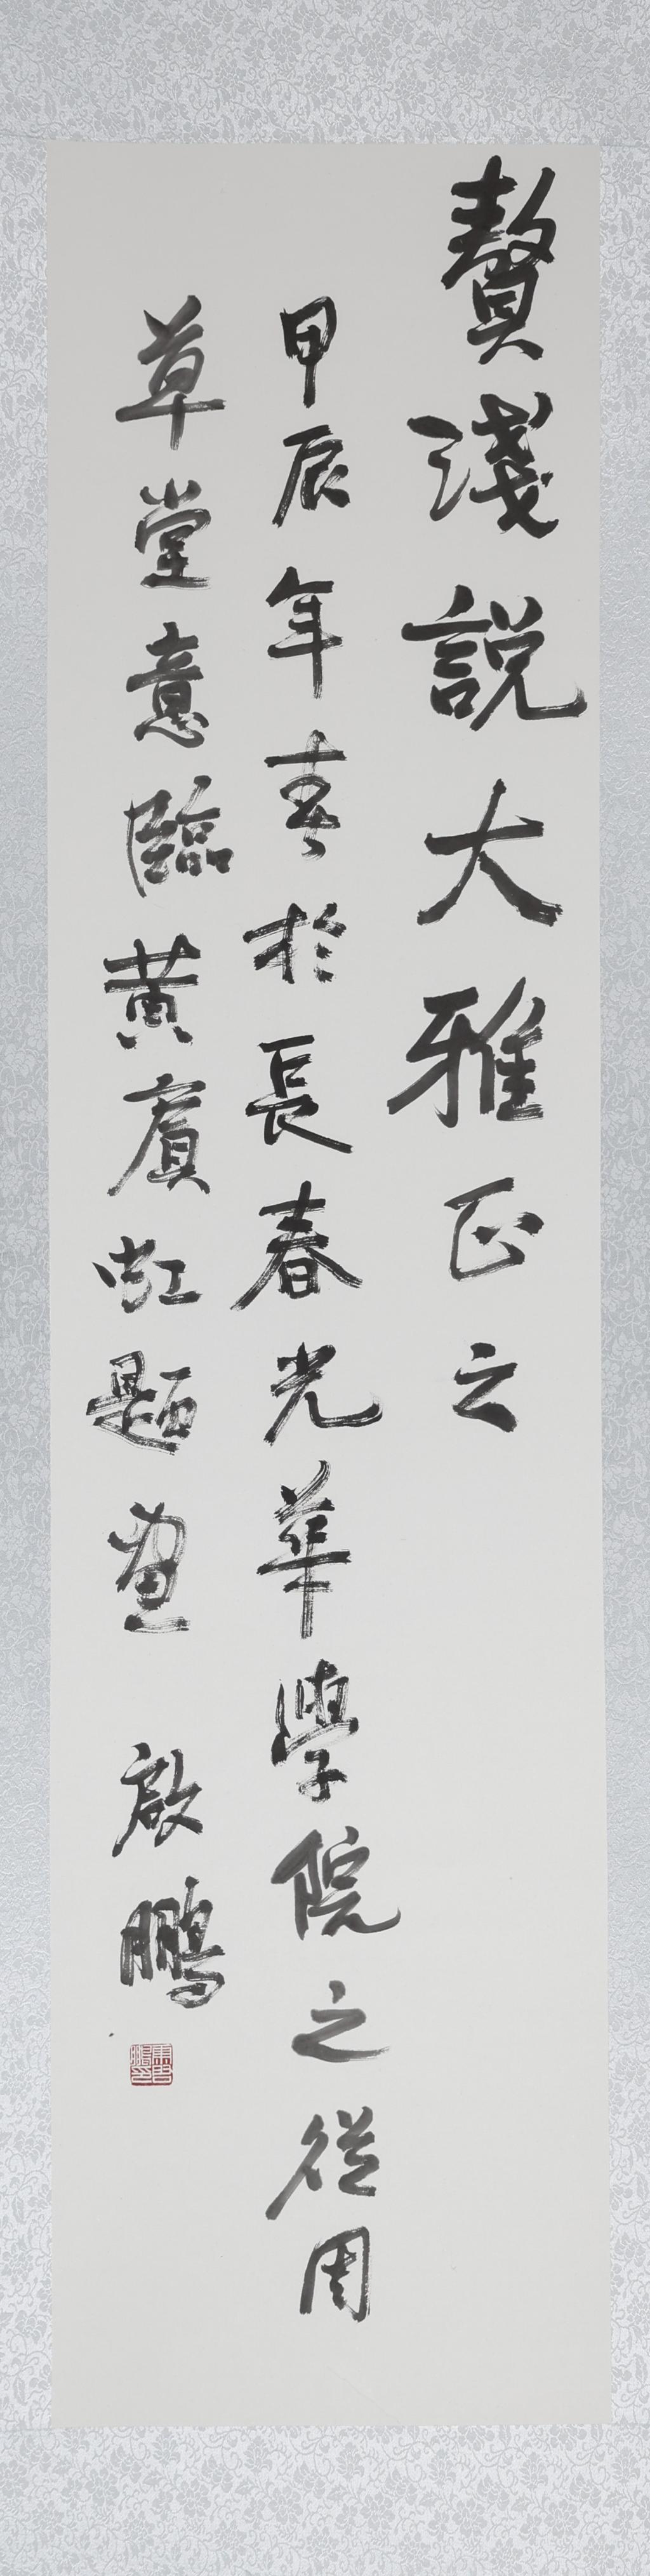 贅淺說大雅正之
甲辰年春於長春光華學院之從周
草堂意臨黃賓虹題畫 啟鵬